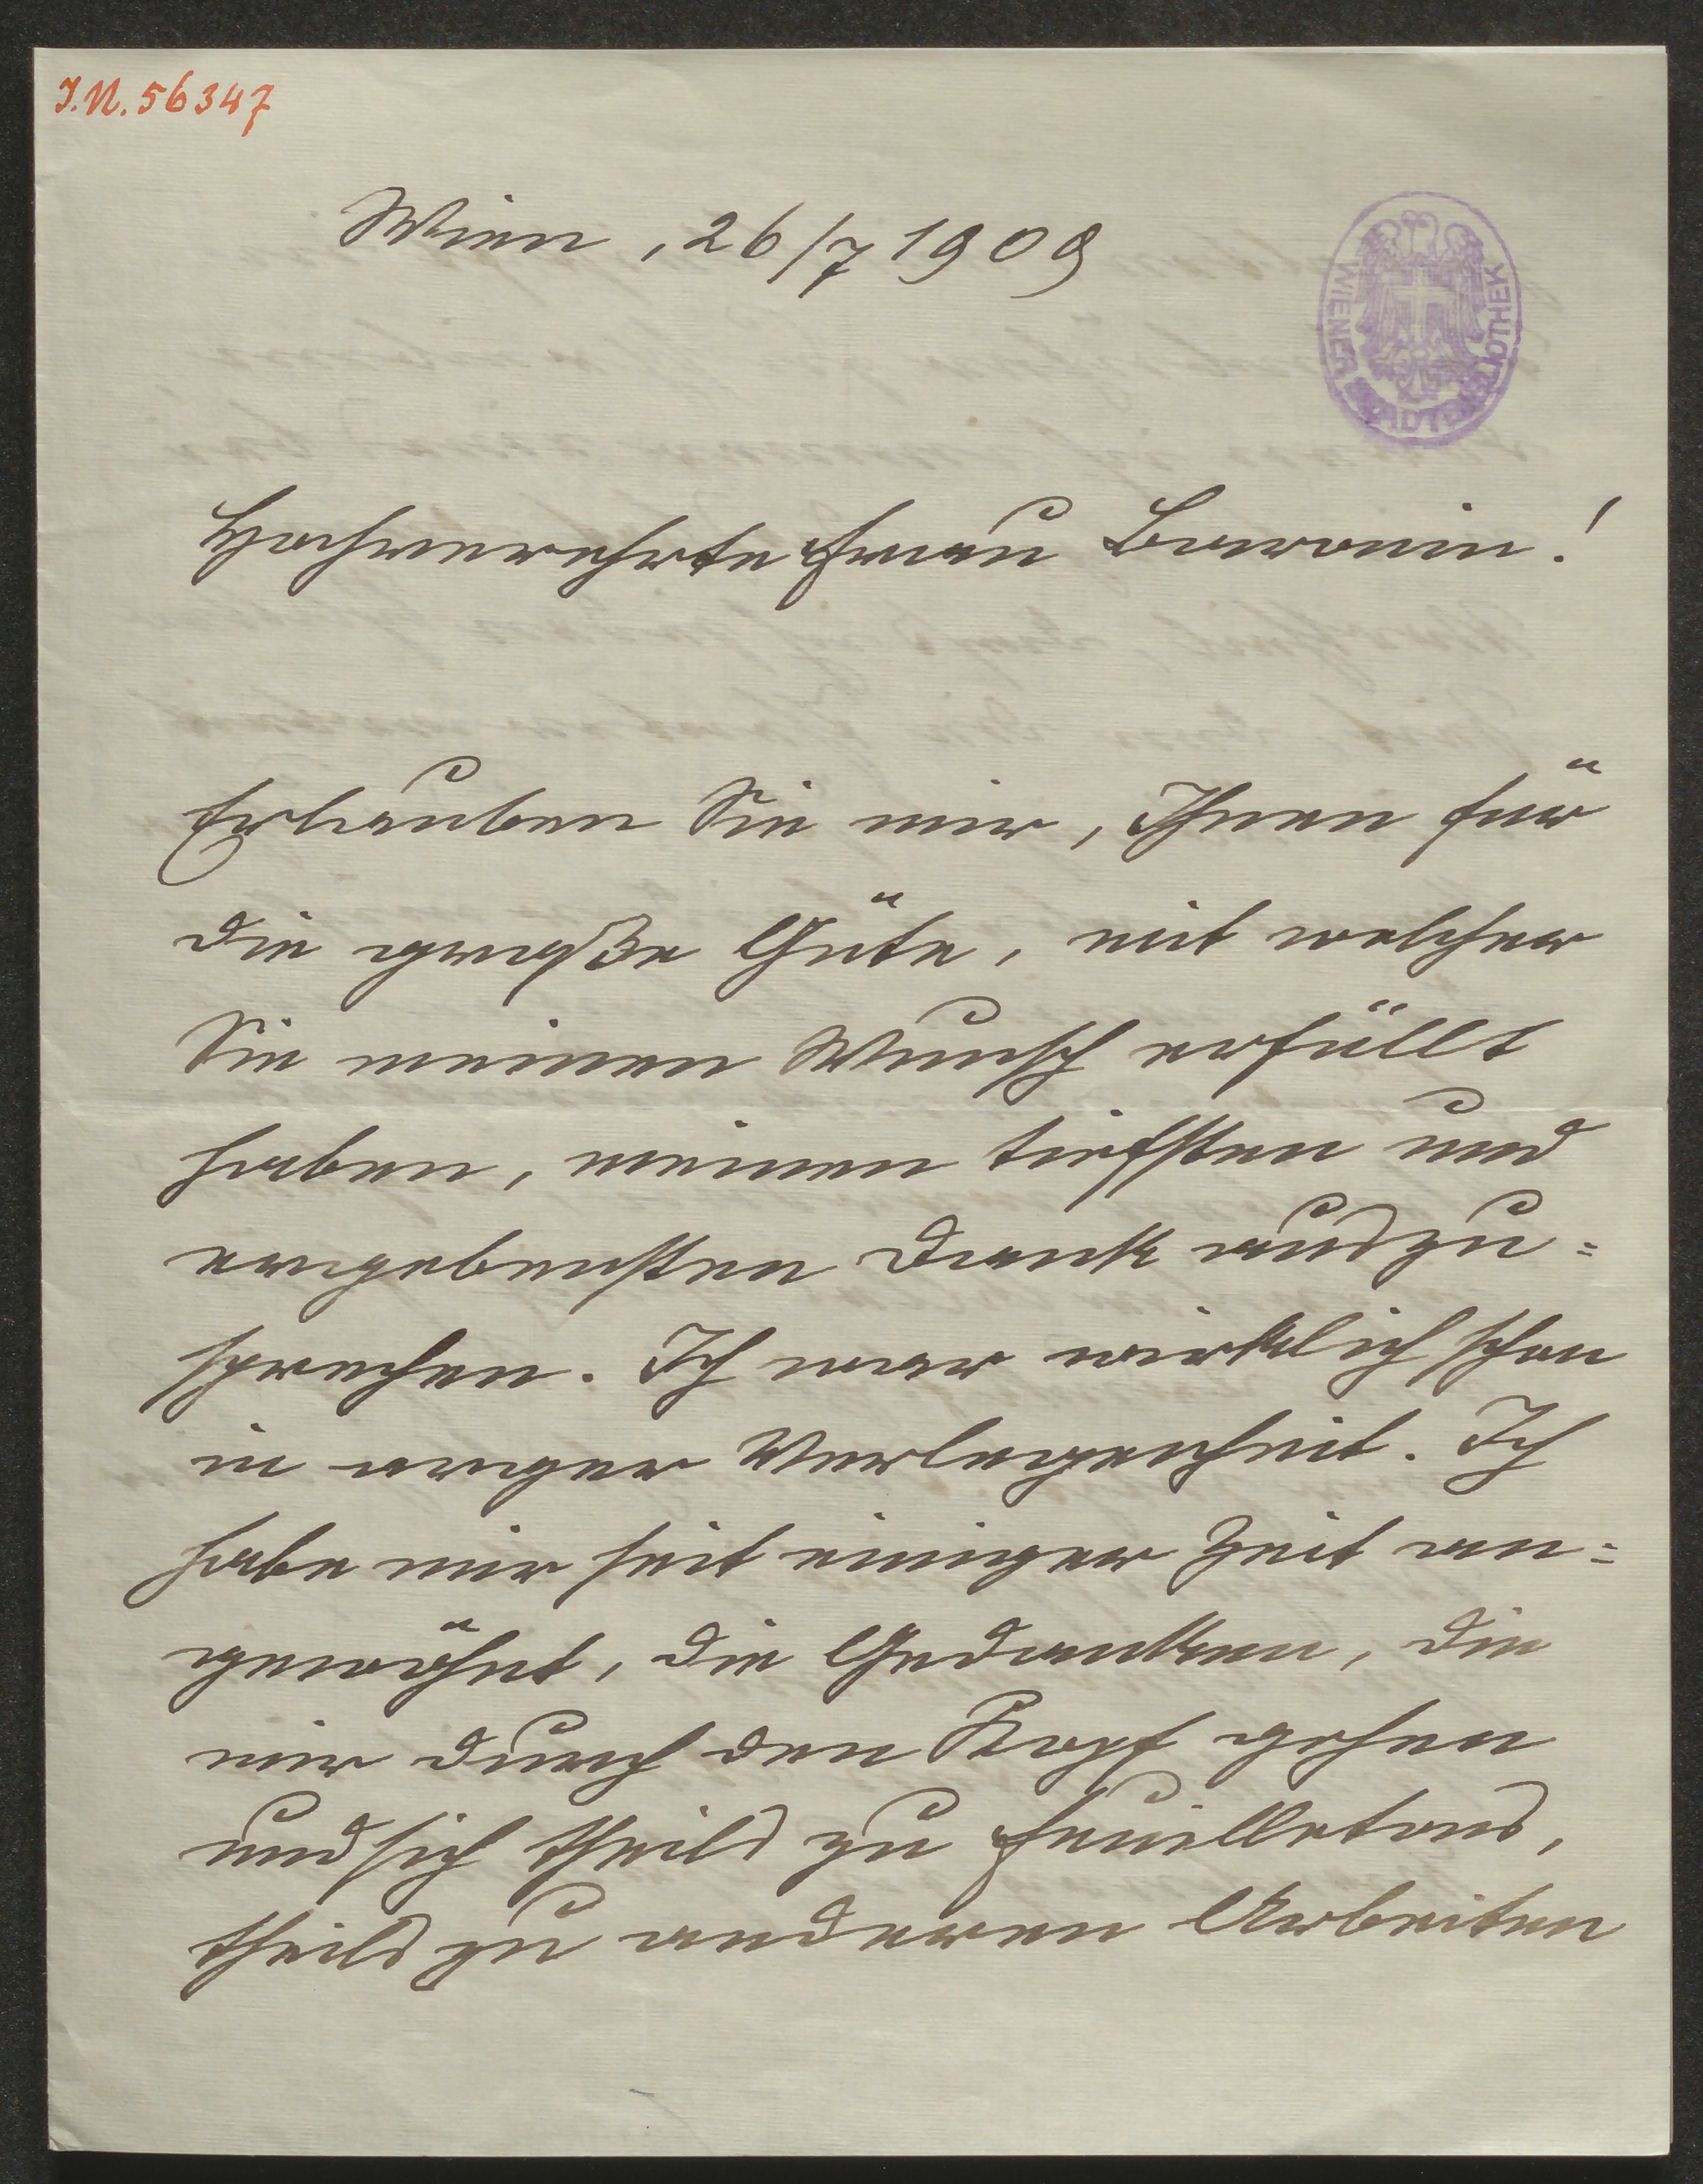 I.N. 56347
Wien, 26/7 1909
WIENER STADTBIBLIOTHEK
Hochverehrte Frau Baronin!
Erlauben Sie mir, Ihnen für
die große Güte, mit welcher
Sie meinen Wunsch erfüllt
haben, meinen tiefsten und
ergebensten Dank auszu=
sprechen. Ich war wirklich schon
in arger Verlegenheit. Ich
habe mir seit einiger Zeit an=
gewöhnt, die Gedanken, die
mir durch den Kopf gehen
und sich theils zu Feuilletons,
theils zu anderen Arbeiten